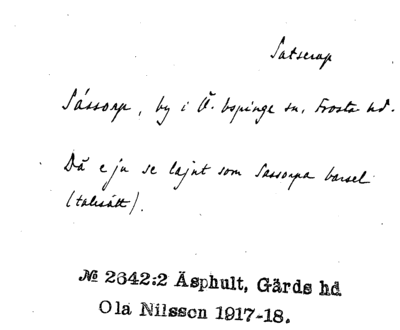 Satserup
Såssorp, by i Ö. Espinge sn, Frosta hd.
Dä e ju se lajnt som Sassorpa barsel
(talesätt).
№ 2642:2 Äsphult, Gärds hd
Ola Nilsson 1917-18.